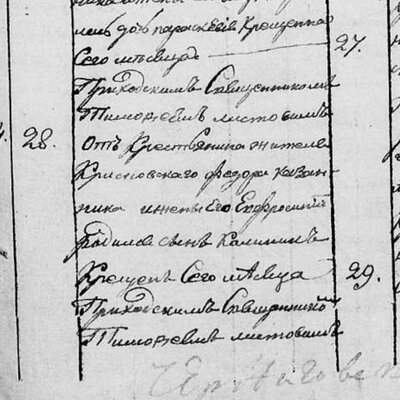 мень дочь параскевiя Крещенна
Сего мѣсяца
27.
Приходскимъ Священникомъ
Тимофеемъ листовымъ
28.
Отъ Крестьянина жителя
Федора казан-
ника и жены Его Ефросинiи
родился сынъ Калиникъ
Крещенъ Сего мѣсяца
29.
Приходскимъ Священнико
Тимофеемъ листовымъ